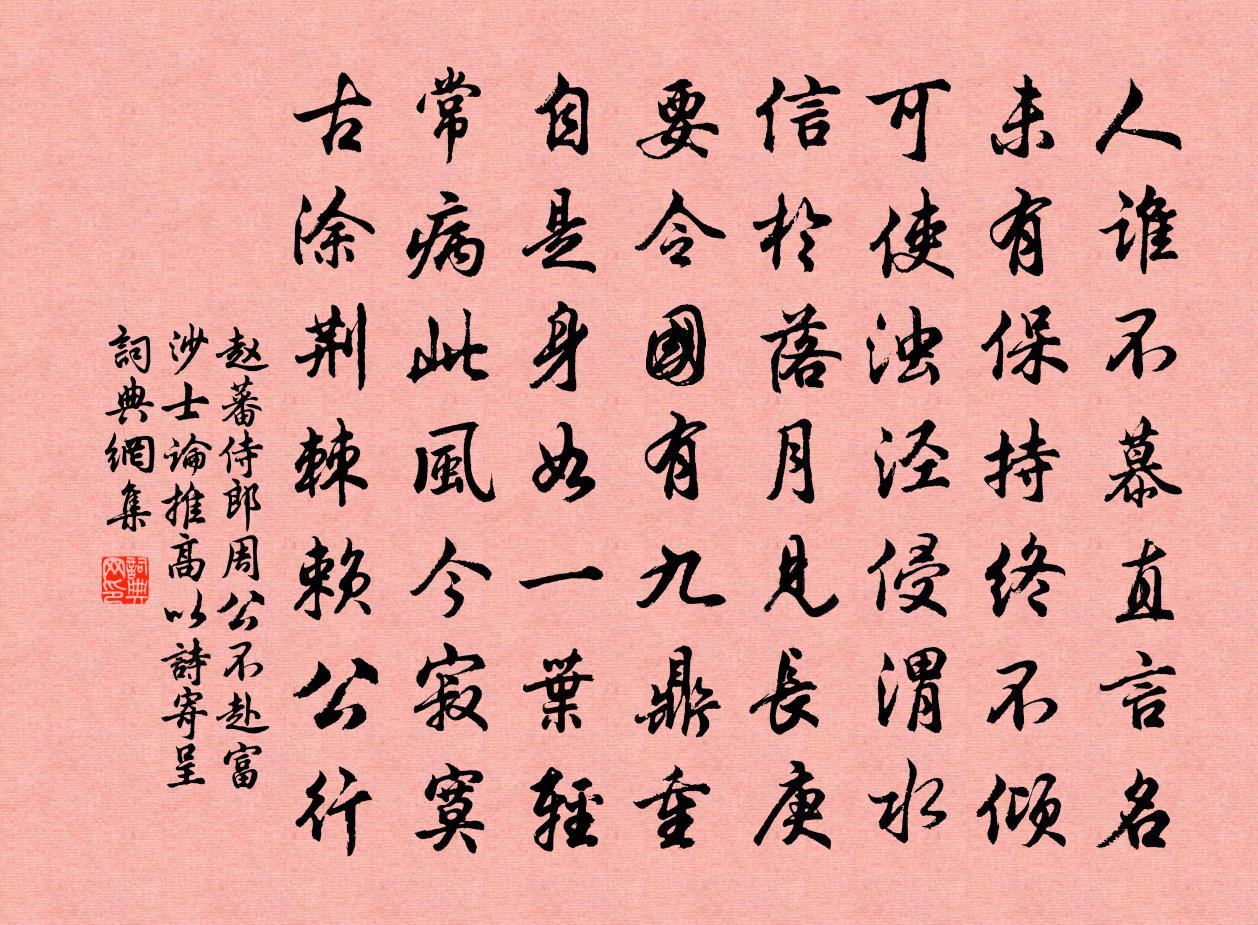 人谁不慕直言名
未有保持终不倾
可使浊泾侵渭水
信於落月見長庚
要令國有九鼎重
自是身如一葉輕
常病此風今寂寞
古涂荆棘赖公行
赵蕃侍郎周公不赴富
沙士论推高以詩寄呈
詞典網集
詞典网印